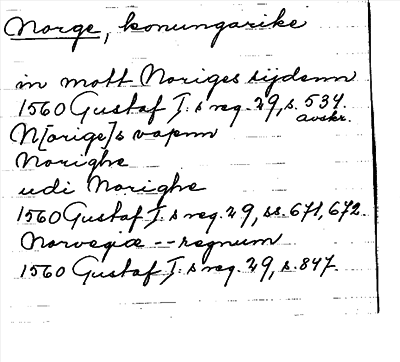 Norge, konungarike
in mott Noriges sijdenn
1560 Gustaf I:s reg. 29, s. 534.
avskr.
N[orige]s vapnn
Norighe
udi Norighe
1560 Gustaf I:s reg. 29, ss. 671, 672.
Norvegiæ -- regnum
1560 Gustaf I:s reg. 29, s. 847.